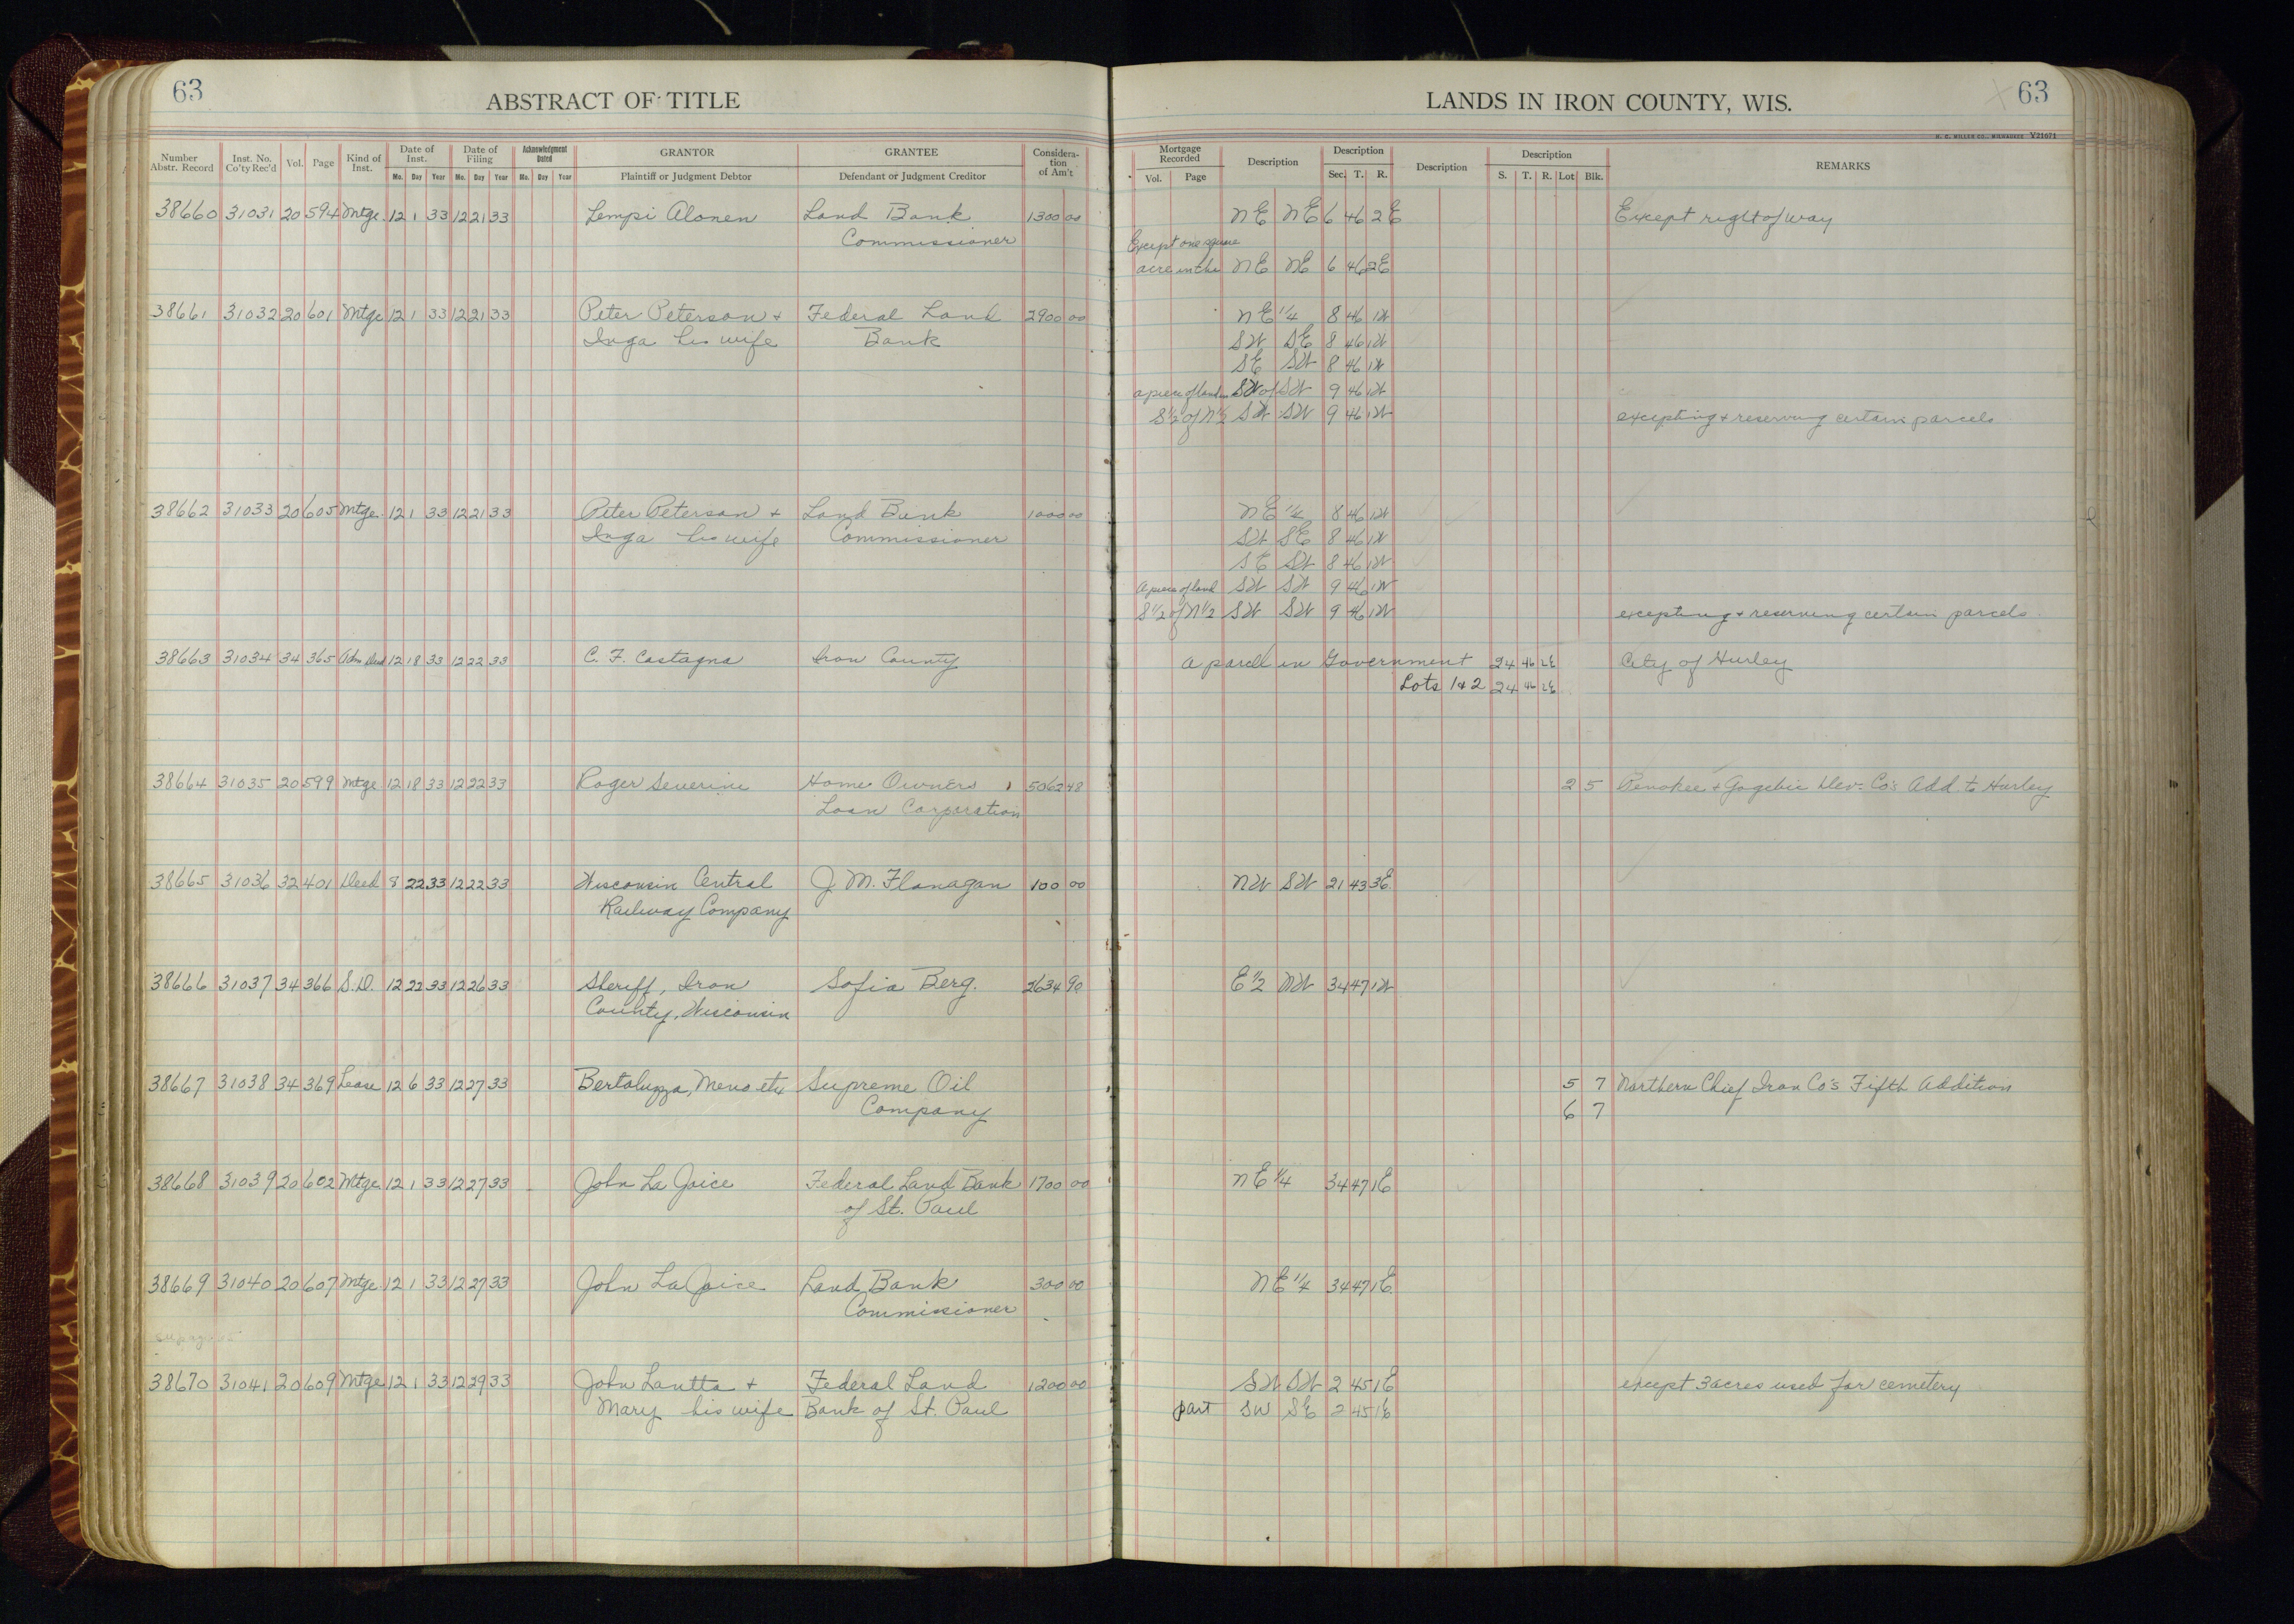 63
ABSTRACT OF TITLE
LANDS IN IRON COUNTY, WIS.
63
H. C. MILLER CO., MILWAUKEE V21671
Number Abstr. Record | Inst. No. Co'ty Rec'd | Vol. | Page | Kind of Inst. | Date of Inst. Mo. Day Year | Date of Filing Mo. Day Year | Acknowledgment Dated Mo. Day Year | GRANTOR Plaintiff or Judgment Debtor | GRANTEE Defendant or Judgment Creditor | Considera-tion of Am't | Mortgage Recorded Vol. Page | Description | Description Sec. T. R. | Description | Description S. T. R. Lot Blk. | REMARKS
38660 31031 20 594 Mtge. 12 1 33 12 21 33 Lempi Alonen Land Bank 1300 00 NE NE 6 46 2E Except right of way
Commissioner Except one square
acre in the NE NE 6 46 2E
38661 31032 20 601 Mtge 12 1 33 12 21 33 Peter Peterson + Federal Land 2900 00 NE 1/4 8 46 1W
Inga his wife Bank SW SE 8 46 1W
SE SW 8 46 1W
a piece of land in SW of SW 9 46 1W
S 1/2 of N 1/2 SW SW 9 46 1W excepting + reserving certain parcels
38662 31033 20 605 Mtge. 12 1 33 12 21 33 Peter Peterson + Land Bank 1000 00 NE 1/4 8 46 1W
Inga his wife Commissioner SW SE 8 46 1W
SE SW 8 46 1W
A piece of land SW SW 9 46 1W
S 1/2 of N 1/2 SW SW 9 46 1W excepting + reserving certain parcels
38663 31034 34 365 Adm Deed 12 18 33 12 22 33 C. F. Castagna Iron County a parcel in Government 24 46 2E City of Hurley
Lots 1+2 24 46 2E
38664 31035 20 599 Mtge 12 18 33 12 22 33 Roger Severini Home Owners 5062 48 2 5 Penokee + Gogebic Dev. Co's Add. to Hurley
Loan Corporation
38665 31036 32 401 Deed 8 22 33 12 22 33 Wisconsin Central J. M. Flanagan 100 00 NW SW 21 43 3E
Railway Company
38666 31037 34 366 S.D. 12 22 33 12 26 33 Sheriff, Iron Sofia Berg. 2634 90 E 1/2 NW 34 47 1W
County, Wisconsin
38667 31038 34 369 Lease 12 6 33 12 27 33 Bertoluzza, Meno etux Supreme Oil 5 7 Northern Chief Iron Co's Fifth Addition
Company 6 7
38668 31039 20 602 Mtge 12 1 33 12 27 33 John La Joice Federal Land Bank 1700 00 NE 1/4 34 47 1E
of St. Paul
38669 31040 20 607 Mtge. 12 1 33 12 27 33 John LaJoice Land Bank 300 00 NE 1/4 34 47 1E
Commissioner
38670 31041 20 609 Mtge 12 1 33 12 29 33 John Lautta + Federal Land 1200 00 SW SW 2 45 1E except 3 acres used for cemetery
Mary his wife Bank of St. Paul part SW SE 2 45 1E